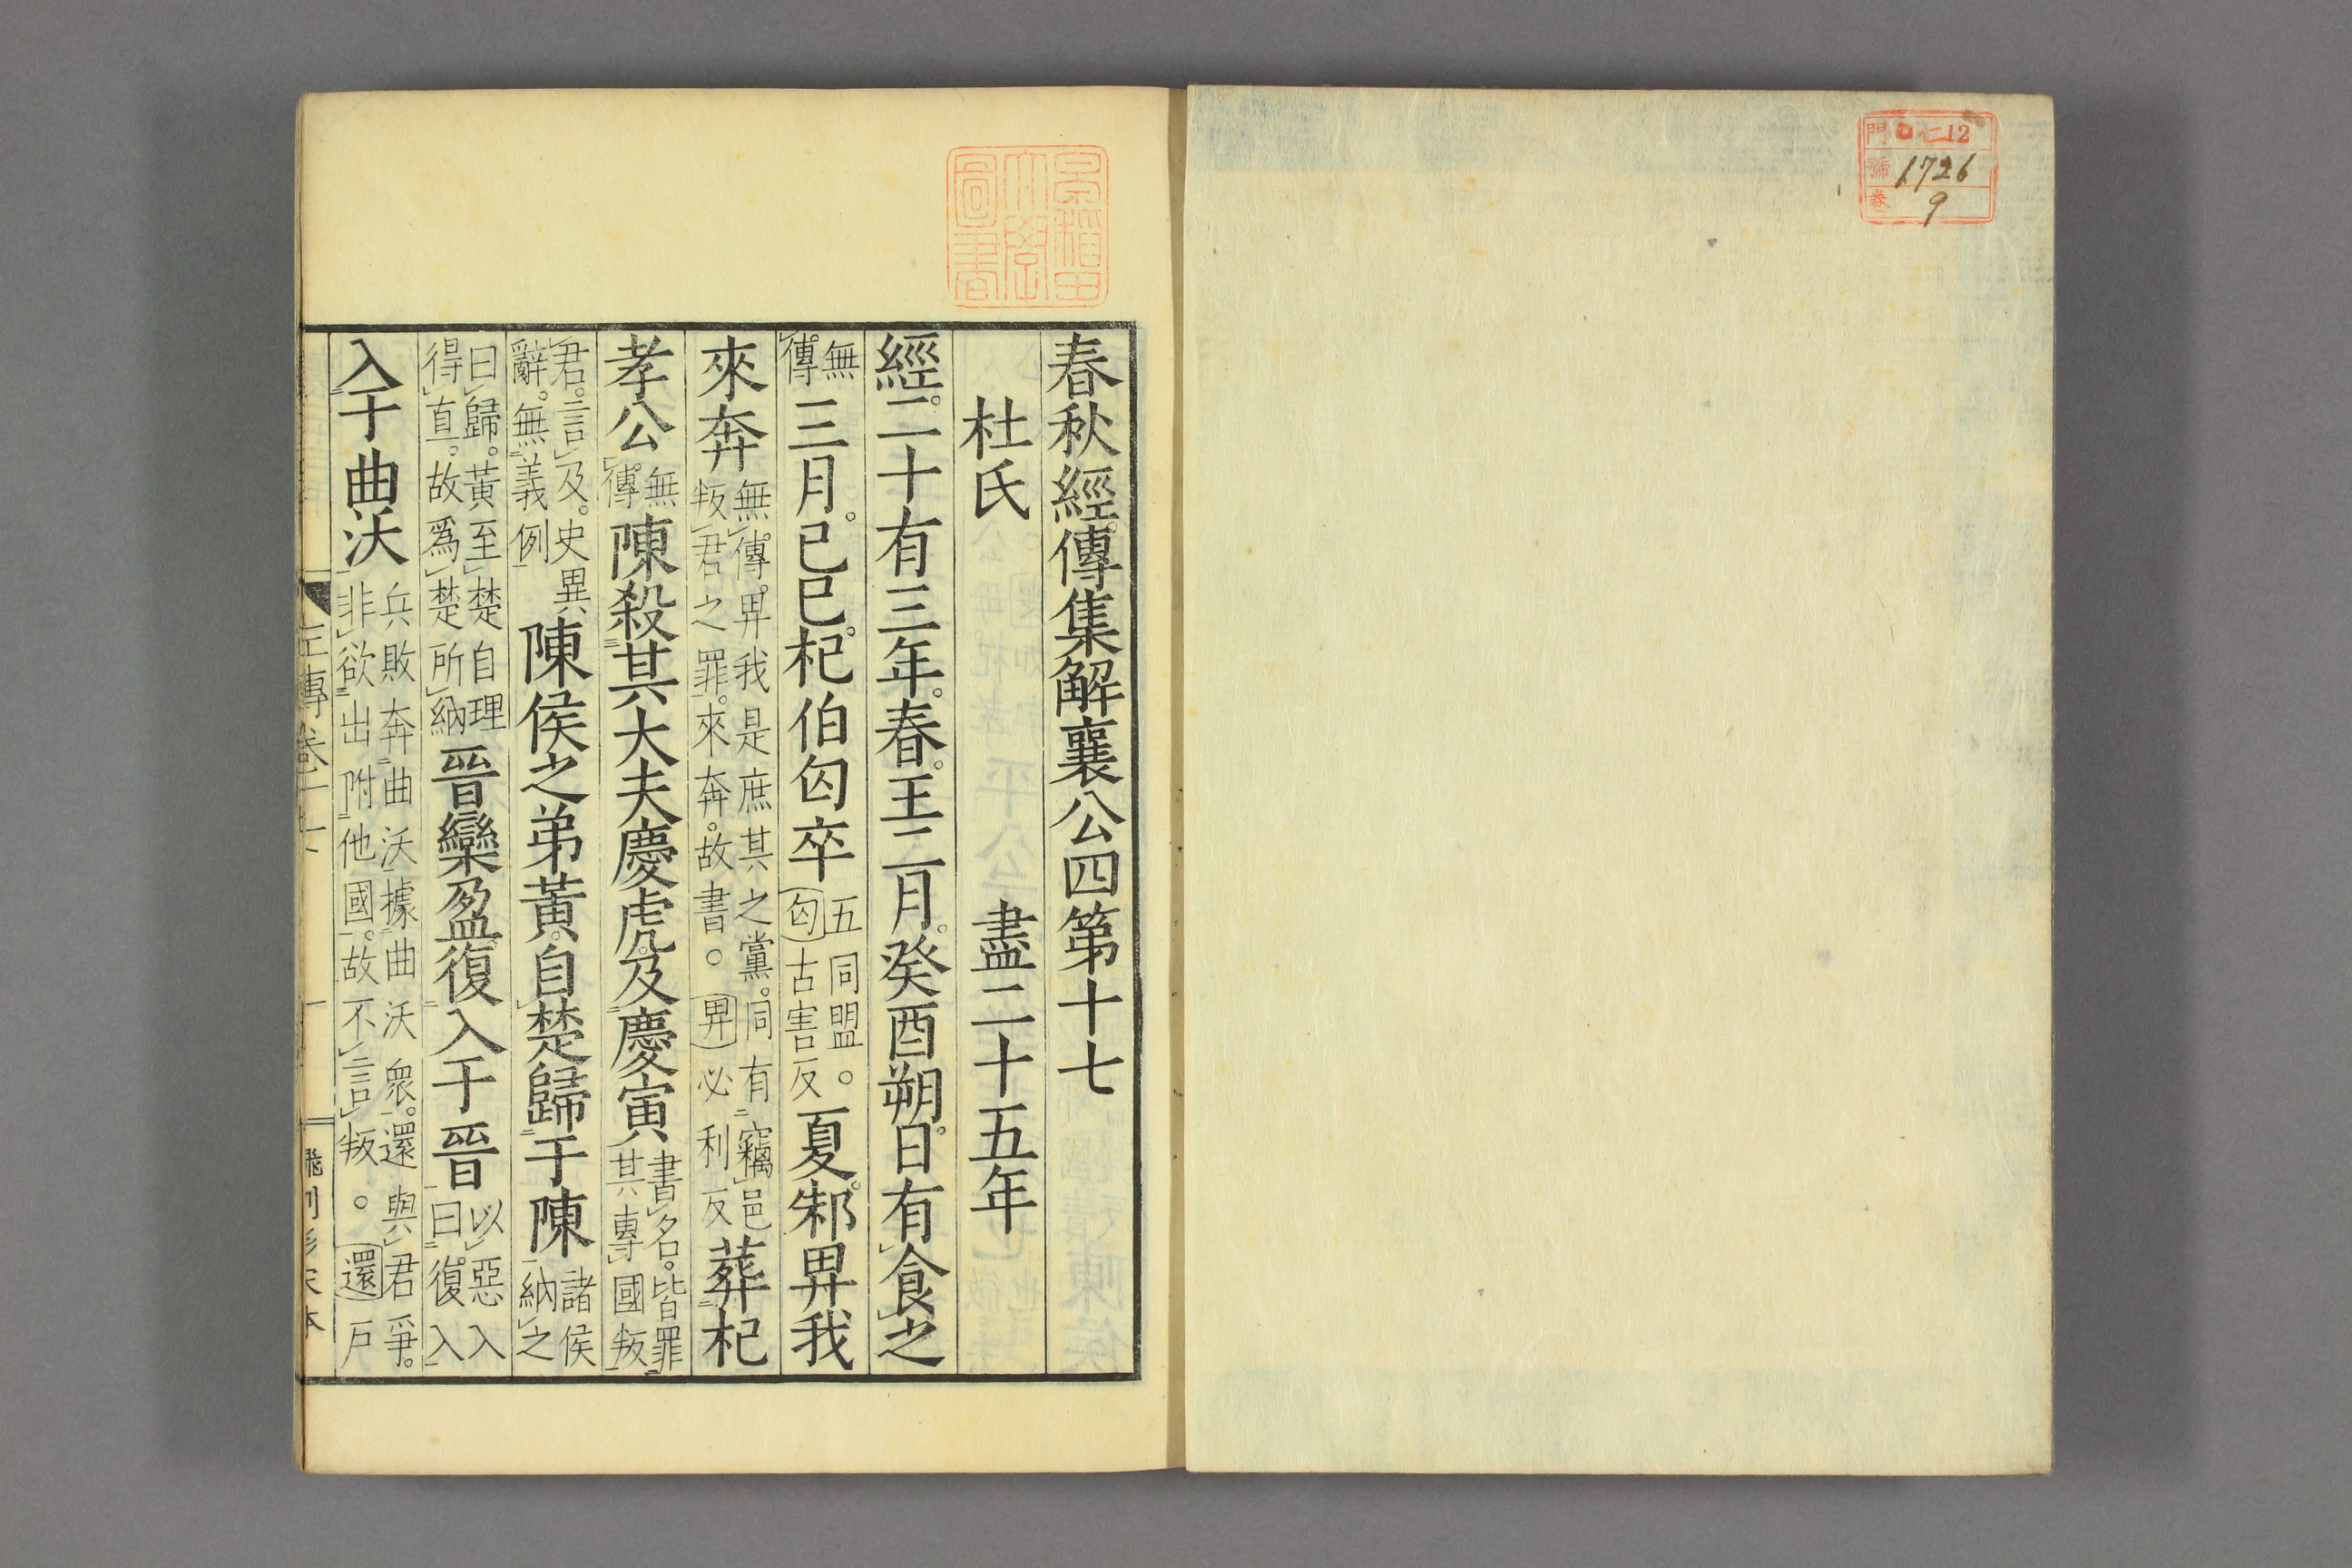 門 12
號 1726
卷 9
早稻田大學圖書
春秋經傳集解襄公四第十七
杜氏 盡二十五年
經。二十有三年。春。王二月。癸酉朔。日有食之
無傳。三月。己巳。杞伯匄卒五同盟。匄古害反夏。邾畀我
來奔無傳。畀我是庶其之黨。同有竊邑叛君之罪。來奔。故書。畀必利反葬杞
孝公無傳。陳殺其大夫慶虎。及慶寅書名。皆罪其專國叛
君。言及。史異辭。無義例陳侯之弟黃。自楚歸于陳諸侯納之
曰歸。黃至楚自理得直。故爲楚所納晉欒盈復入于晉以惡入曰。復入
入于曲沃兵敗奔曲沃據曲沃衆。還與君爭。非欲出附他國。故不言叛。還戶